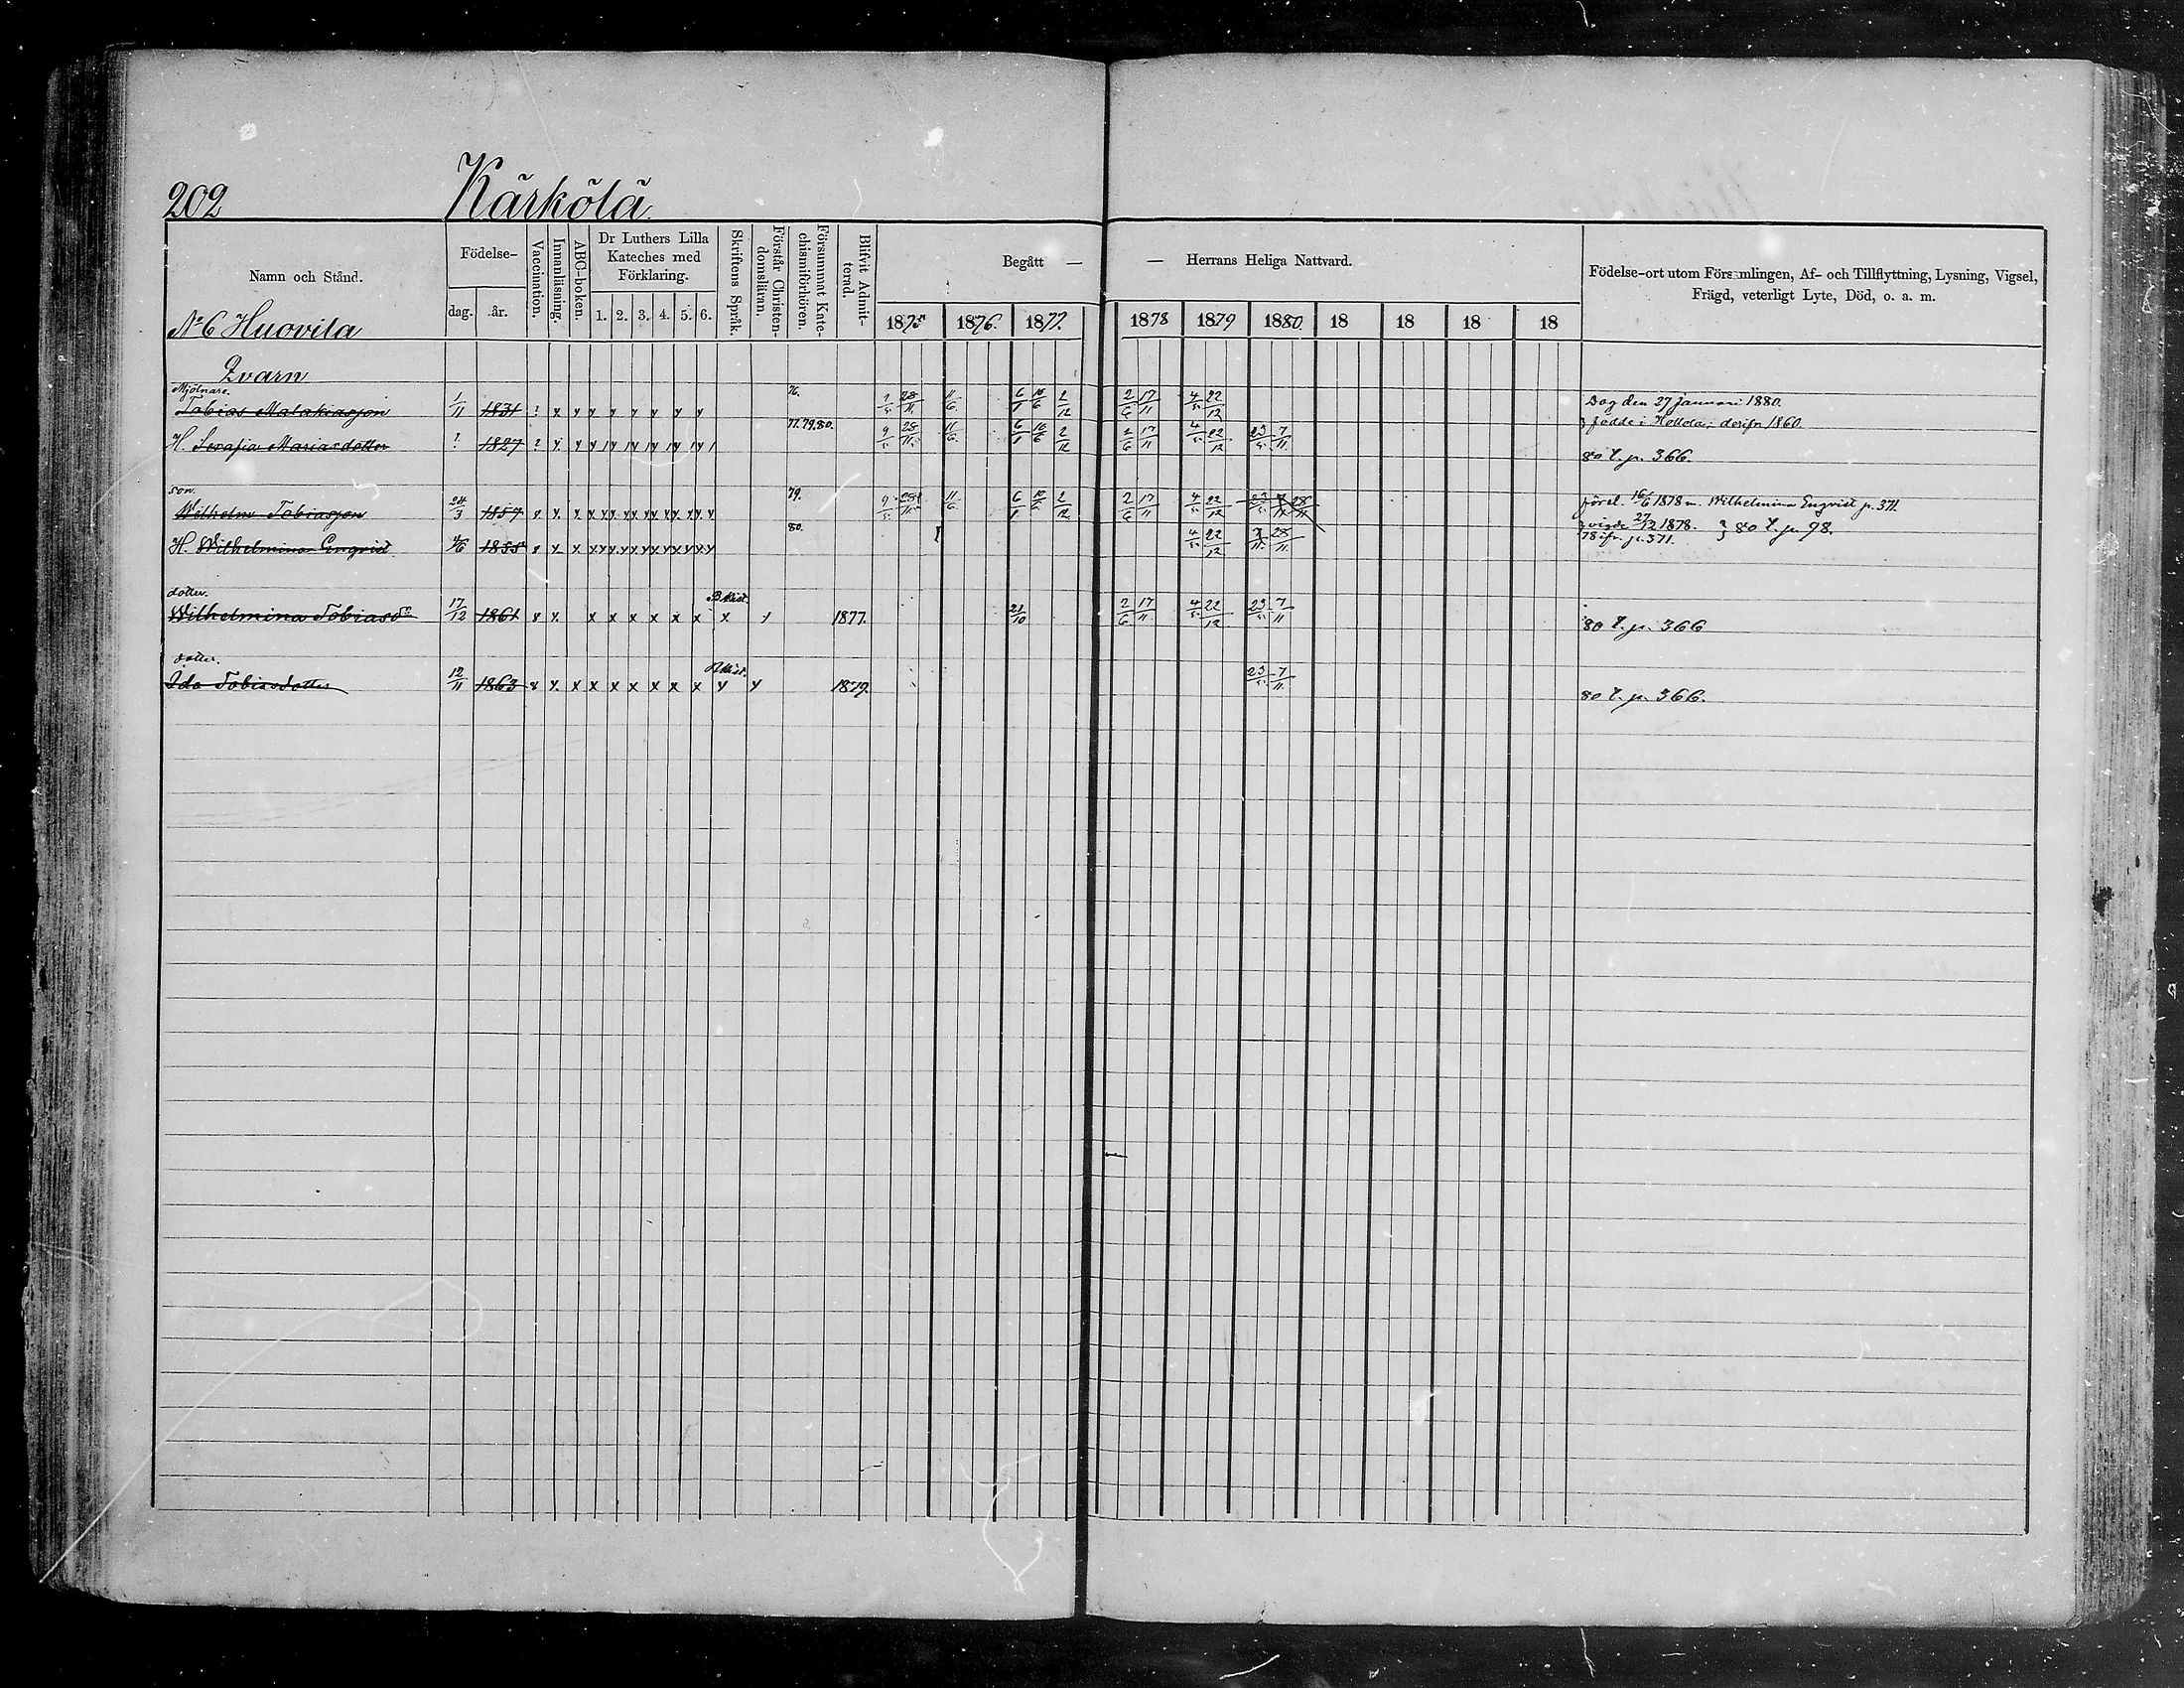 202 Kärkölä
Namn och Stånd.
Födelse-
dag. år.
Vaccination.
Innanläsning.
ABC-boken.
Dr Luthers Lilla
Kateches med
Förklaring.
1. 2. 3. 4. 5. 6.
Skriftens Språk.
Förstår Christen-
domsläran.
Försummat Kate-
chismiförhören.
Blifvit Admit-
terad.
Begått — — Herrans Heliga Nattvard.
1875 1876. 1877. 1878 1879 1880. 18 18 18 18
Födelse-ort utom Församlingen, Af- och Tillflyttning, Lysning, Vigsel,
Frägd, veterligt Lyte, Död, o. a. m.
No 6 Huovila
Qvarn
Mjölnare.
Tobias Malakiasson 1/11 1831 ? x y y y y y y y 76. 28/11. 11/6. 6/1 10/6 2/12 2/6 17/11 4/5. 22/12 Dog den 27 Januari 1880.
H. Serafia Mariasdotter ? 1827 ? 77.79.80. 9/5. 28/11. 11/6. 6/1 10/6 2/12 2/6 17/11 4/5. 22/12 23/5. 7/11. födde i Hollola; derifr 1860
80 t. p. 366.
son.
Wilhelm Tobiasson 24/3 1857 79. 9/5. 28/11. 11/6. 6/1 10/6 2/12 2/6 17/11 4/5. 22/12 förel. 16/6 1878 m. Wilhelmina Enqvist p. 371.
vigde 27/12 1878. } 80 t. p. 98.
H. Wilhelmina Enqvist 4/6 1855 80. 4/5. 22/12 7/11. 28/11. 78 ifr. p. 371.
dotter.
Wilhelmina Tobiasdr 17/12 1861 x x x x x x x 1877. 21/10 2/6. 17/11. 4/5. 22/12 23/5. 7/11 80 t. p. 366
dotter.
Ida Tobiasdotter 12/11 1863 x x x x x x x y y 1879. 23/5. 7/11. 80 t. p. 366.